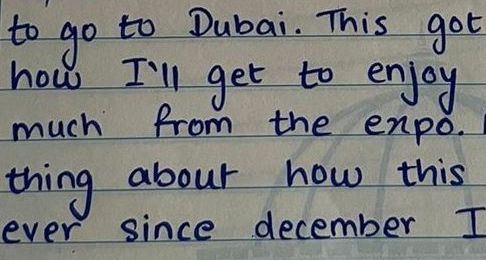 to go to Dubai. This got
how I'll get to enjoy
much from the expo.
thing about how this
ever since december I